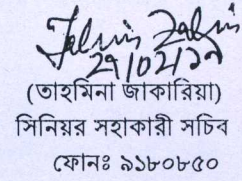 ২৭/০২/১৯
(তাহমিনা জাকারিয়া)
সিনিয়র সহাকারী সচিব
ফোনঃ ৯১৮০৮৫০